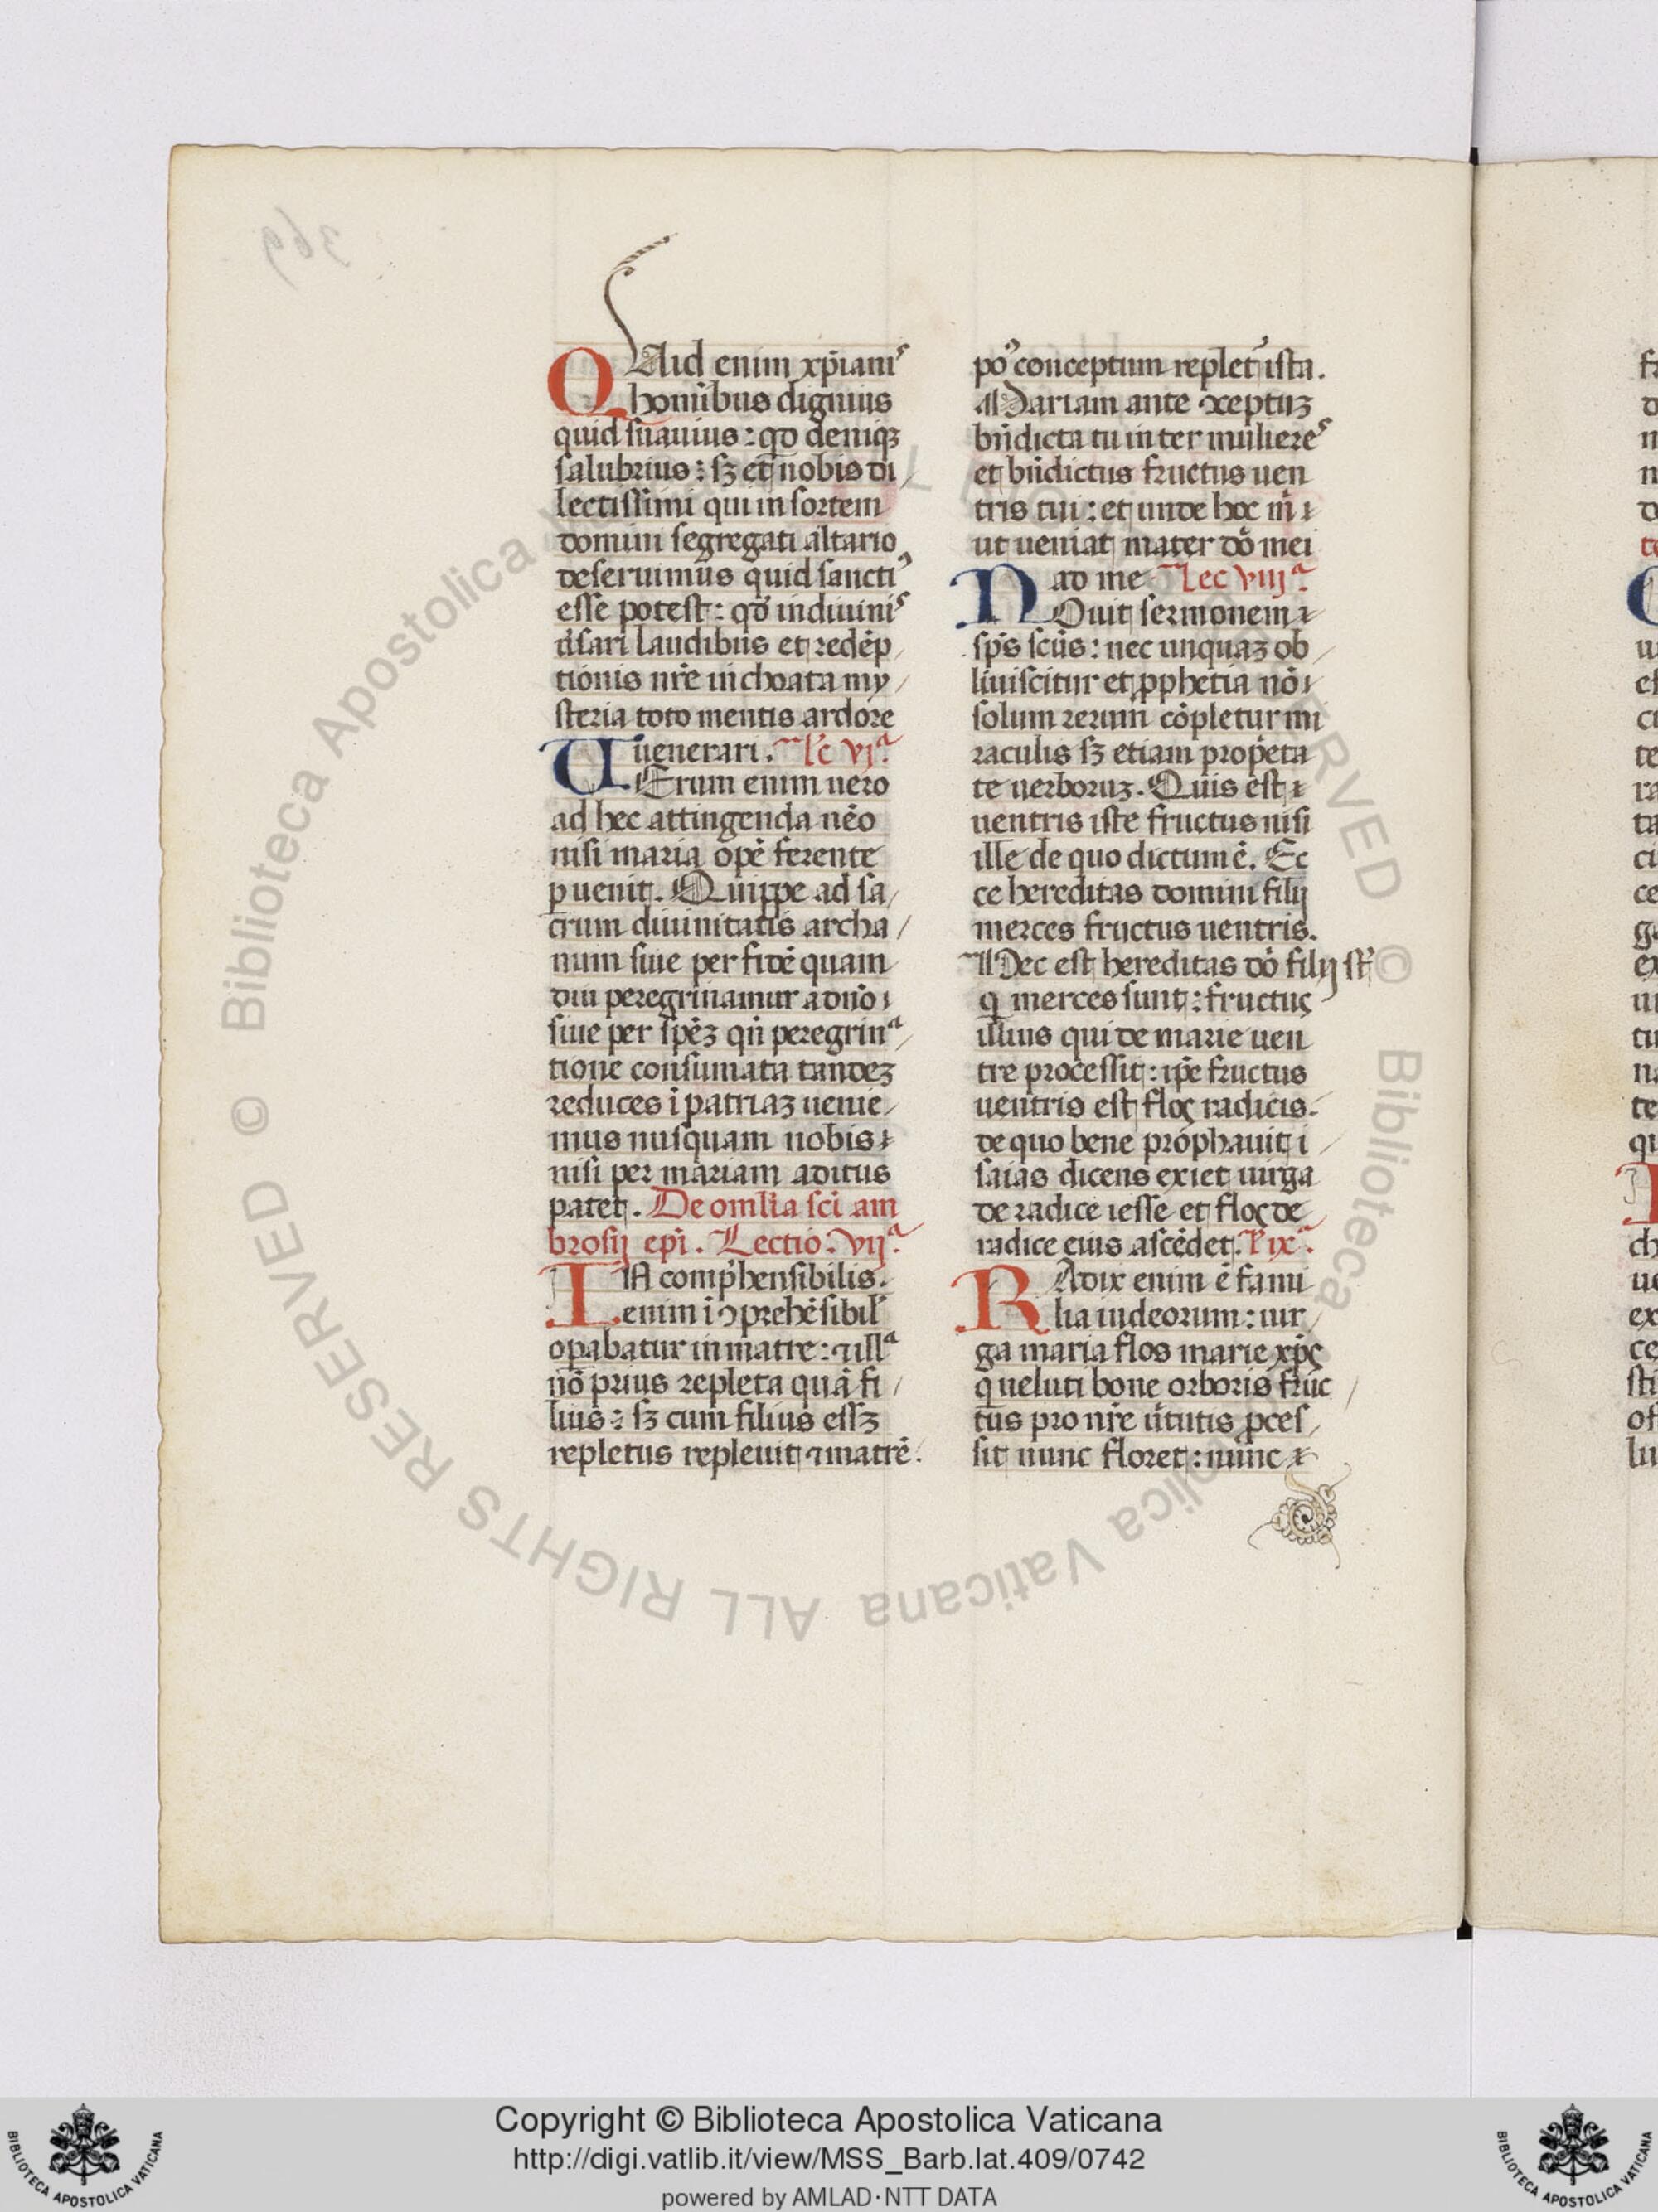 QUid enim xp̄ianis
hominibus dignius
quid suauius: qd̄ deniqꝫ
salubrius: sꝫ et nobis di
lectissimi qui in sortem
domini segregati altario
deseruimus quid sancti⁹
esse potest: qd̄ in diuinis
v̄sari laudibus et redēp
tionis nr̄e inchoata my
steria toto mentis ardore
uenerari. Lc̄ vjª.
UErum enim uero
ad hec attingenda nēo
nisi maria opē ferente
ꝑuenit. Quippe ad sa
crum diuinitatis archa
num siue per fidē quam
diu peregrinamur a dn̄o
siue per spēꝫ qn̄ peregrinª
tione consumata tandeꝫ
reduces ī patriaꝫ uenie
mus nusquam nobis
nisi per mariam aditus
patet. De omīlia sc̄i am
brosij ep̄i. Lectio. vijª.
IN comp̄hensibilis.
enim ī ꝯprehēsibil'
oꝑabatur in matre: ⁊ illª
nō prius repleta quā fi
lius: sꝫ cum filius essꝫ
repletus repleuit ⁊ matrē.
po⁹ conceptum replet' ista.
Mariam ante ꝯceptuꝫ
bn̄dicta tu inter mulieres
et bn̄dictus fructus uen
tris tui: et unde hoc m̄
ut ueniat mater dō mei
ad me Lec viijª.
NOuit sermonem
sp̄s sc̄us: nec unquaꝫ ob
liuiscitur et ꝓphetia nō
solum rerum cōpletur mi
raculis sꝫ etiam propeta
te uerboruꝫ. Quis est
uentris iste fructus nisi
ille de quo dictum ē. Ec
ce hereditas domini filij
merces fructus uentris.
Hec est hereditas dō filij st̄
q̄ merces sunt: fructus
illius qui de marie uen
tre processit: ip̄e fructus
uentris est flos radicis.
de quo bene prophauit i
saias dicens exiet uirga
de radice iesse et flos de
radice eius ascēdet. L' ixª.
RAdix enim ē fami
lia iudeorum: uir
ga maria flos marie xp̄s
q̄ ueluti bone orboris fruc
tus pro nr̄e ūtutis ꝓces
sit nunc floret: nunc
Copyright © Biblioteca Apostolica Vaticana
http://digi.vatlib.it/view/MSS_Barb.lat.409/0742
powered by AMLAD·NTT DATA
BIBLIOTECA APOSTOLICA VATICANA
BIBLIOTECA APOSTOLICA VATICANA